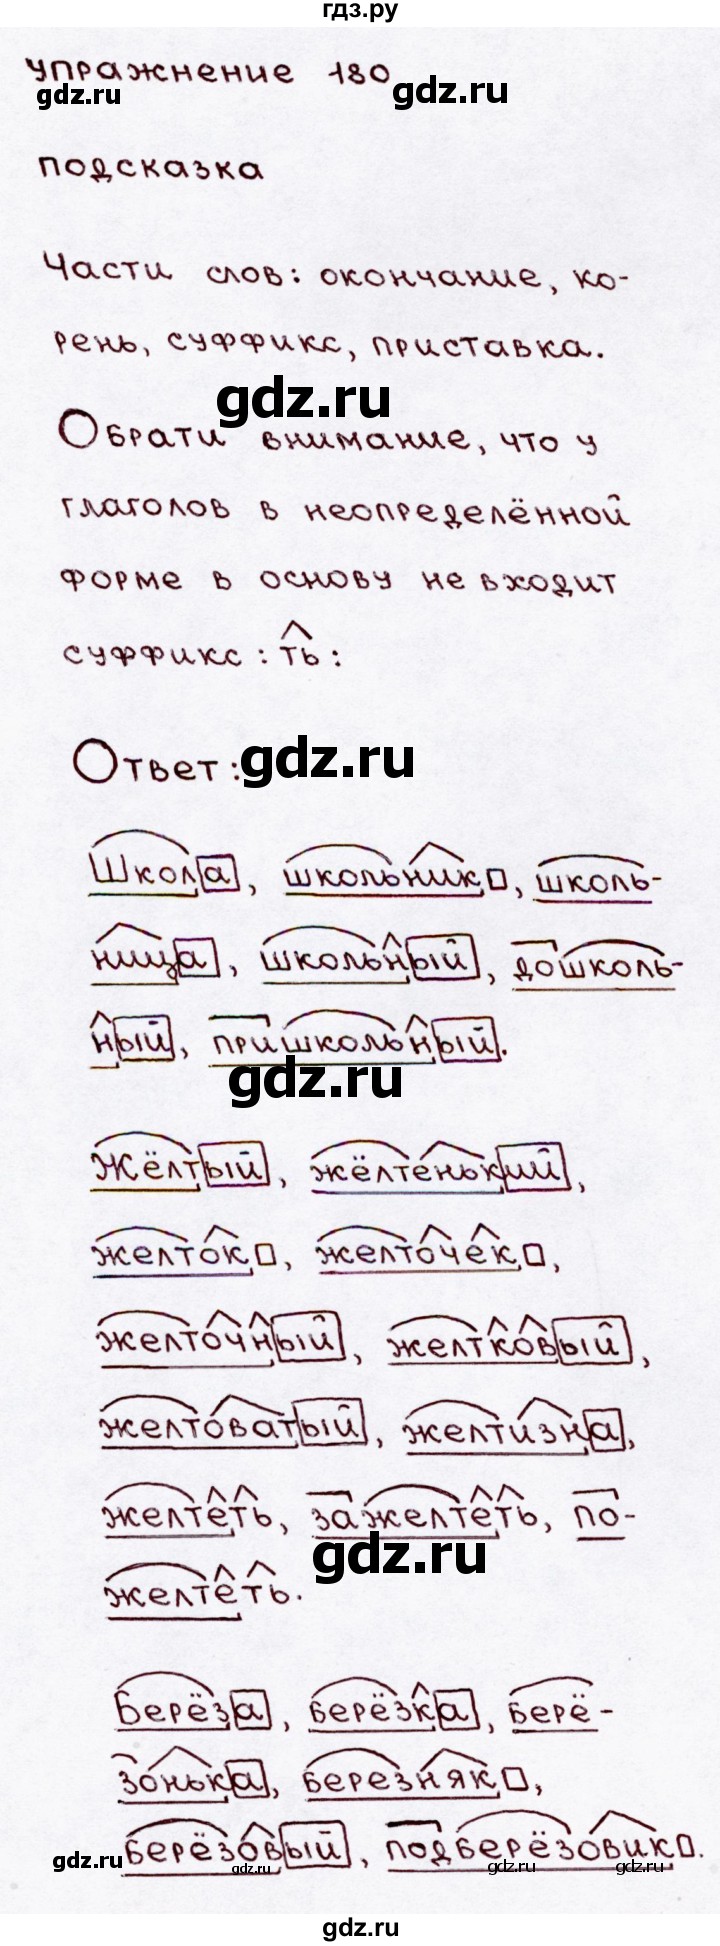 гдз.ру
упражнение 180
gdz.ru gdz.ru
подсказка
Части слов: окончание, ко-
рень, суффикс, приставка.
gdz.ru
Обрати внимание, что у
глаголов в неопределённой
форме в основу не входит
суффикс: ть:
Ответ: gdz.ru
Школа, школьник, школь-
ница, школьный, дошколь-
ный, пришкольный.
gdz.ru
Жёлтый, жёлтенький,
желток, желточек,
желточный, желтковый,
желтоватый, желтизна,
желтеть, зажелтеть, по-
gdz.ru
желтеть.
Берёза, берёзка, берё-
зонька, березняк,
берёзовый, подберёзовик.
gdz.ru gdz.ru gdz.ru gdz.ru
gdz.ru